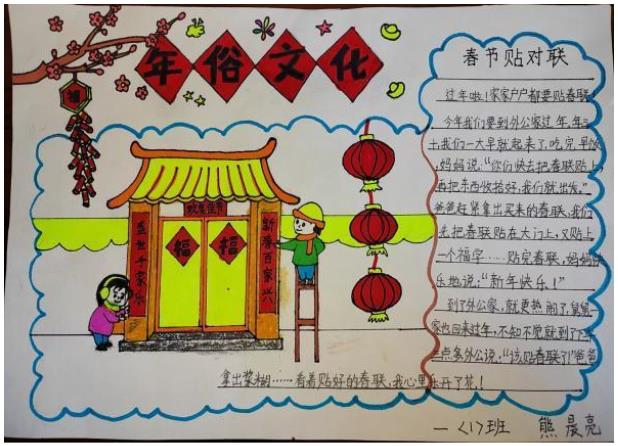 年俗文化
福
春节贴对联
过年啦！家家户户都要贴春联！
今年我们要到外公家过年，年三
十,我们一大早就起来了，吃完早饭
,妈妈说：“你们快去把春联贴上，
再把东西收拾好，我们就出发。”
爸爸赶紧拿出买来的春联，我们
先把春联贴在大门上，又贴上
一个福字……贴完春联，妈妈快
乐地说：“新年快乐！”
到了外公家，就更热闹了，舅舅一
家也回来过年，不知不觉就到了下午
三点多外公说：“该贴春联了！”爸爸
拿出浆糊……看着贴好的春联，我心里乐开了花！
欢度佳节
盛世千家乐
新春百家兴
福
福
一〈1〉班 熊晨亮